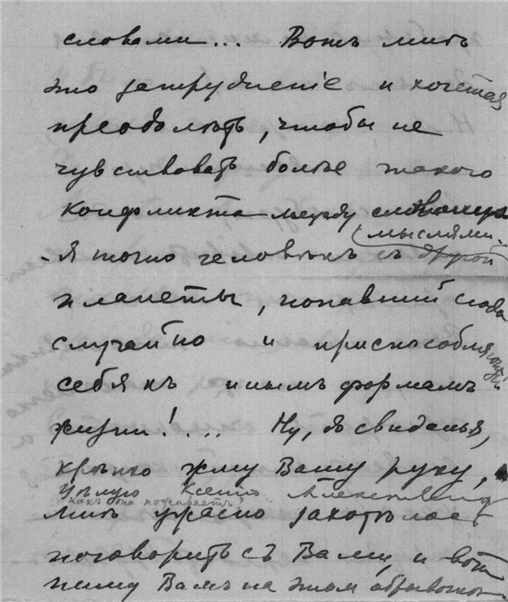 словами... Вотъ мнѣ
это затрудненіе и хочется
преодолѣть, чтобы не
чувствовать болѣе такого
конфликта между словами
(мыслями..
- Я точно человѣкъ съ другой
планеты, попавшій сюда
случайно и приспособляющій
себя къ инымъ формамъ
жизни!.... Ну, до свиданья,
крѣпко жму Вашу руку,
Цѣлую Ксенію Александр
какъ она поживаетъ?
мнѣ ужасно захотѣлось
поговорить съ Вами, и вотъ
пишу Вамъ на этомъ обрывочкѣ